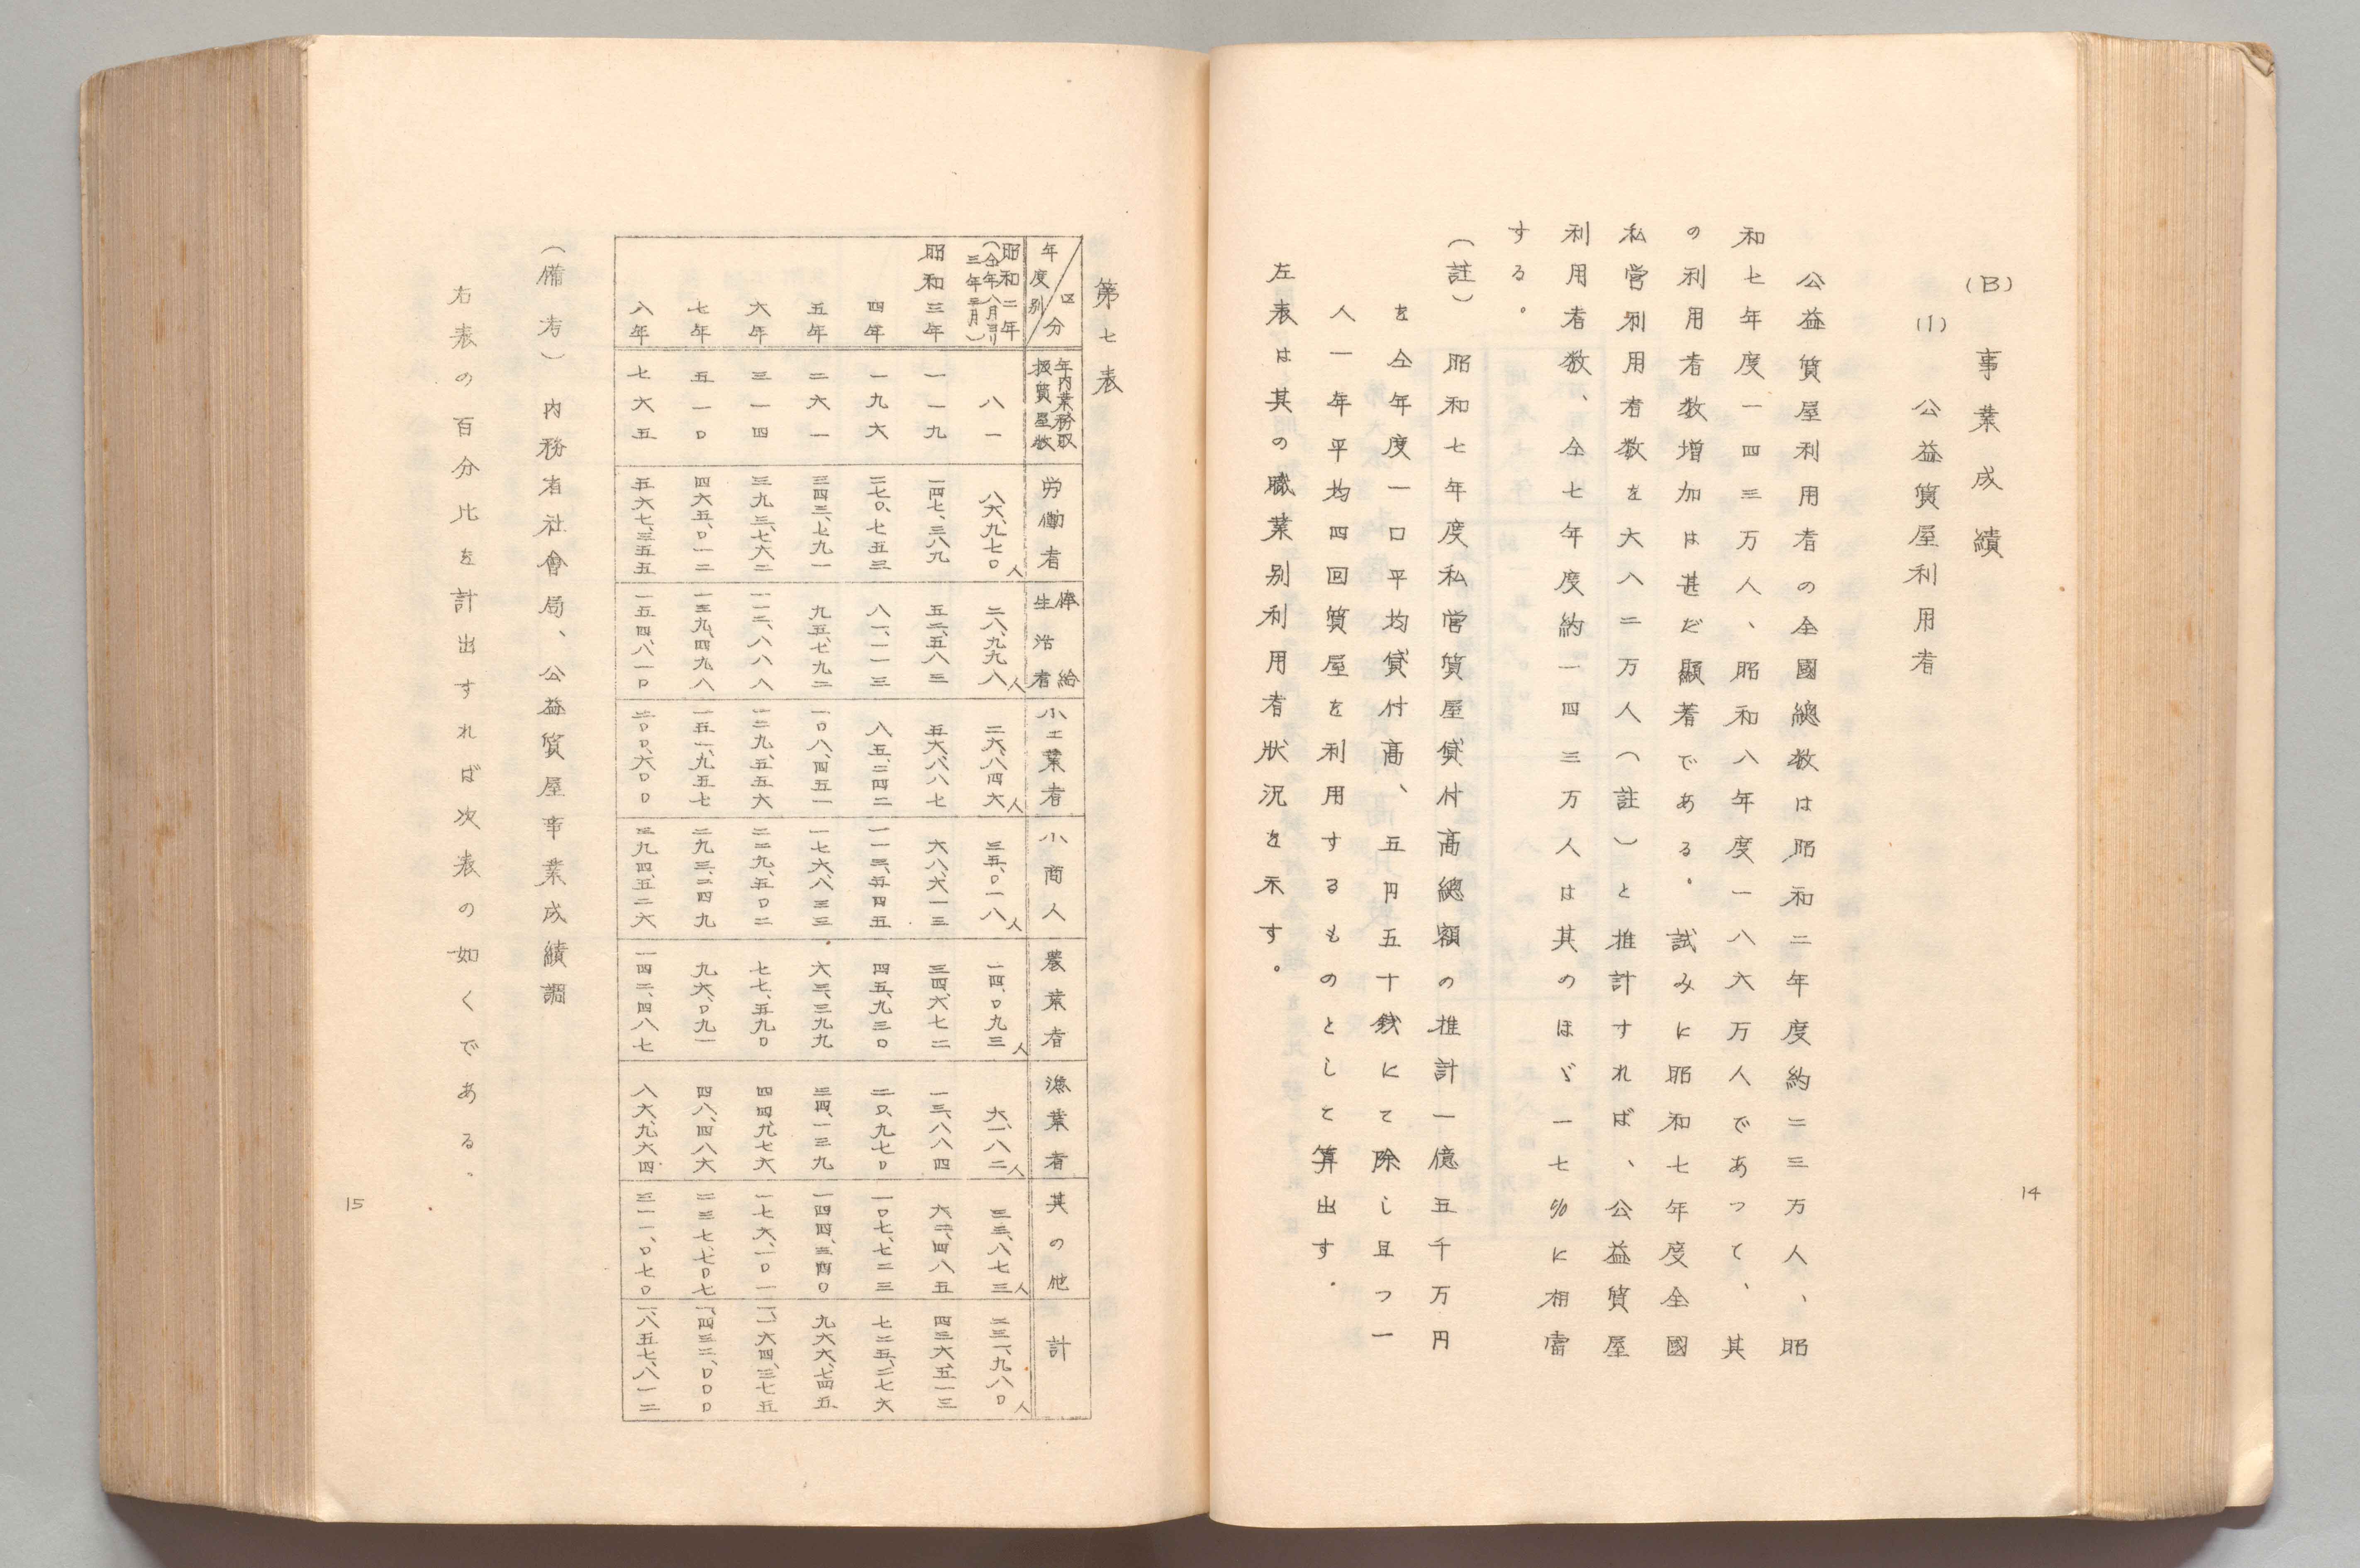 (B) 事業成績
(1) 公益質屋利用者
公益質屋利用者の全國總数は昭和二年度約二三万人、昭
和七年度一四三万人、昭和八年度一八六万人であつて、其
の利用者数増加は甚だ顯著である。試みに昭和七年度全國
私営利用者数を六八二万人(註)と推計すれば、公益質屋
利用者数、仝七年度約一四三万人は其のほゞ一七%に相當
する。
(註) 昭和七年度私営質屋貸付高總額の推計一億五千万円
を仝年度一口平均貸付高、五円五十銭にて除し且つ一
人一年平均四回質屋を利用するものとして算出す.
左表は其の職業别利用者狀況を示す。
14
第七表
区分 年度别 年内業務取扱質屋数 労働者 俸給生活者 小工業者 小商人 農業者 漁業者 其の他 計
昭和二年(仝年八月ヨリ三年三月) 八一 八六、九七〇人 二八、九九八人 二六、八四六人 三五、〇一八人 一四、〇九三人 六、一八二人 三三、八七三人 二三一、九八〇人
昭和三年 一一九 一四七、三八九 五二、五八三 五六、八八七 六八、六一三 三四、六七二 一三、八八四 六二、四八五 四三六、五一三
四年 一九六 二七〇、七五三 八一、一一三 八五、二四二 一一三、五四五 四五、九三〇 二〇、九七〇 一〇七、七二三 七二五、二七六
五年 二六一 三四三、七九一 九五、七九二 一〇八、四五一 一七六、八三三 六三、三九九 三四、一三九 一四四、三四〇 九六六、七四五
六年 三一四 三九三、七六二 一一二、八八八 一二九、五五六 二二九、五〇二 七七、五九〇 四四、九七六 一七六、一〇一 一、一六四、三七五
七年 五一〇 四六五、〇一二 一三九、四九八 一五一、九五七 二九三、二四九 九六、〇九一 四八、四八六 二三七、七〇七 一、四三二、〇〇〇
八年 七六五 五六七、三五五 一五四、八一〇 二〇〇、六〇〇 三九四、五二六 一四二、四八七 八六、九六四 三一一、〇七〇 一、八五七、八一二
(備考) 内務省社會局、公益質屋事業成績調
右表の百分比を計出すれば次表の如くである.
15